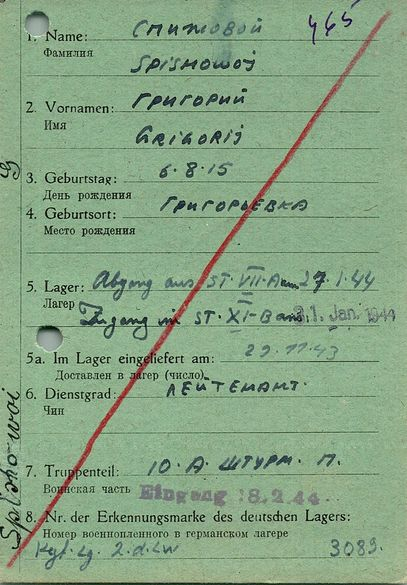 465
1. Name: Спижовой
Фамилия
Spishowoj
2. Vornamen: Григорий
Имя
Grigorij
3. Geburtstag: 6.8.15
День рождения
4. Geburtsort: Григорьевка
Место рождения
5. Lager: Abgang aus ST. VII. A am 27.1.44
Лагер
Zugang in ST. XI-B am 31. Jan. 1944
5a. Im Lager eingeliefert am: 29.11.43
Доставлен в лагер (число)
6. Dienstgrad: Лейтенант.
Чин
7. Truppenteil: 10. А. Штурм. П.
Воинская часть Eingang 8.2.44
8. Nr. der Erkennungsmarke des deutschen Lagers:
Номер военнопленного в германском лагере
Kgf. Lg. 2. d. Lw 3089.
Spishowoi